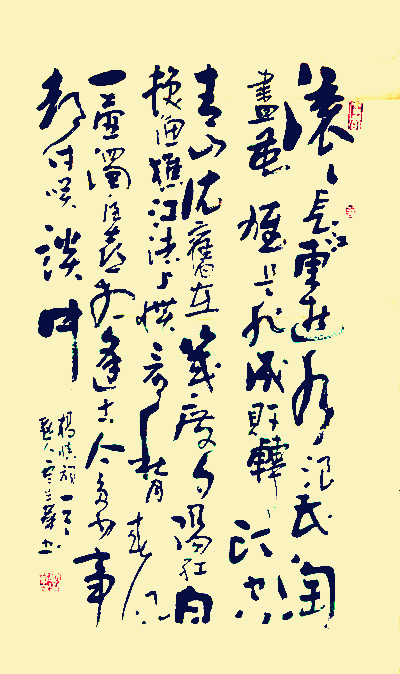 滚〻長江東逝水浪花淘
盡英雄是非成敗轉頭空
青山依舊在幾度夕陽紅白
髮漁樵江渚上慣看秋月春風
一壺濁酒喜相逢古今多少事
都付咲談中
楊慎詞一首